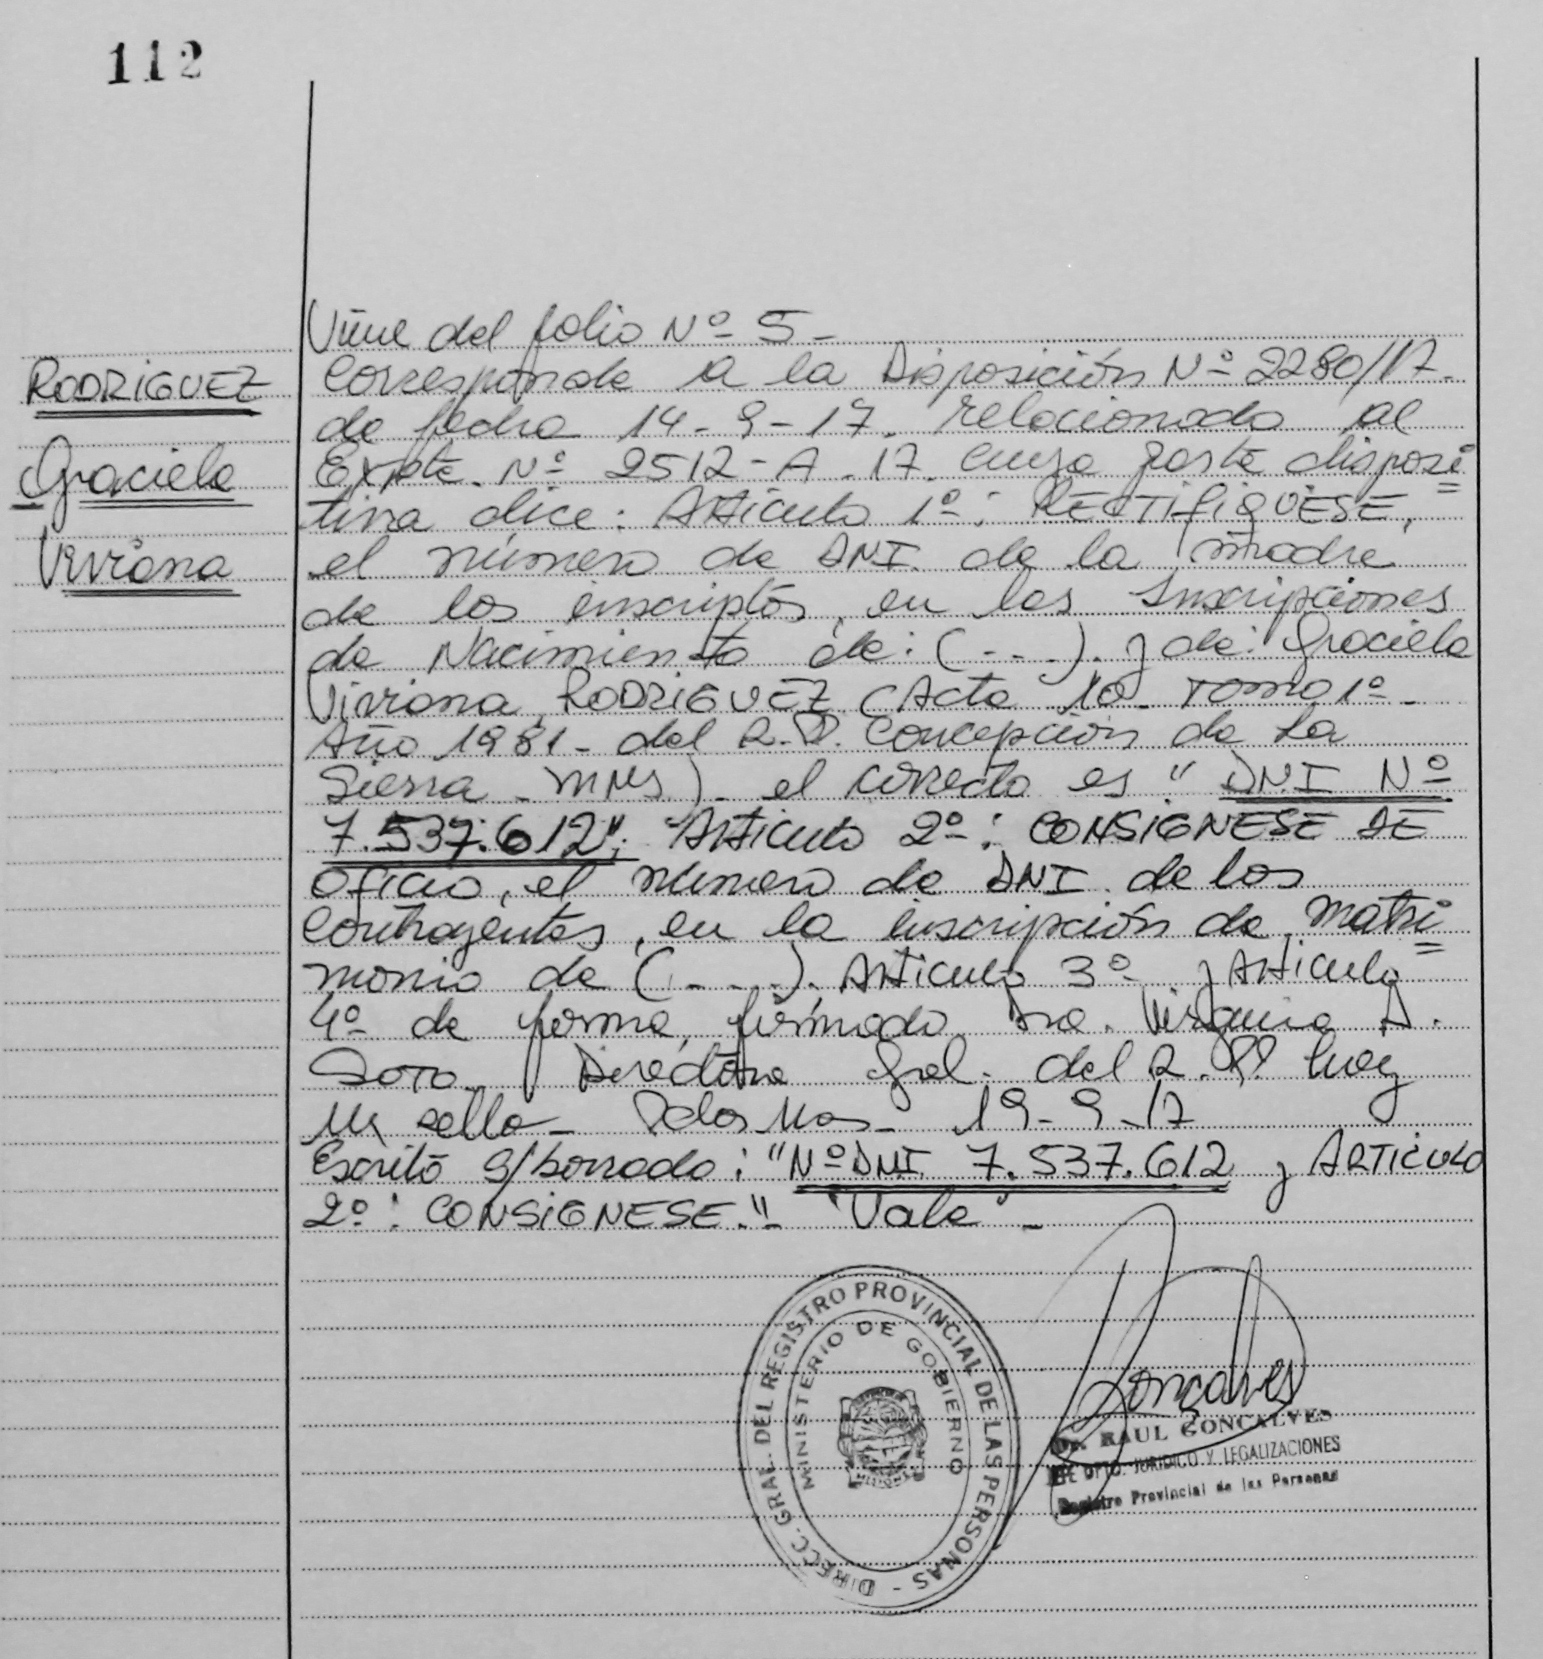 112
RODRIGUEZ
Graciela
Viviana
Viene del folio Nº 5-
Corresponde a la Disposición Nº 2280/17.
de fecha 14-9-17. relacionado al
Expte. Nº 2512-A-17. cuya parte disposi=
tiva dice: Artículo 1º: RECTIFIQUESE,
el número de DNI. de la madre
de los inscriptos, en las Inscripciones
de Nacimiento de: (---). y de: Graciela
Viviana RODRIGUEZ (Acta 10- Tomo 1º-
Año 1981- del R.P. Concepción de La
Sierra - MNS) - el correcto es "DNI Nº
7.537.612"; Artículo 2º: CONSIGNESE DE
OFICIO, el número de DNI. de los
contrayentes, en la inscripción de Matri=
monio de (---). Artículo 3º y Artículo
4º de forma, firmado, Dra. Virginia D.
Soto. Directora Gral. del R.P. Hay
un sello- Pdas Mns- 19-9-17
Escrito s/borrado: "Nº DNI 7.537.612 y ARTICULO
2º: CONSIGNESE."- "Vale"-
DIRECC. GRAL. DEL REGISTRO PROVINCIAL DE LAS PERSONAS -
MINISTERIO DE GOBIERNO
MISIONES
Goncalves
Dr. RAUL GONCALVES
JEFE DPTO. JURIDICO Y LEGALIZACIONES
Registro Provincial de las Personas